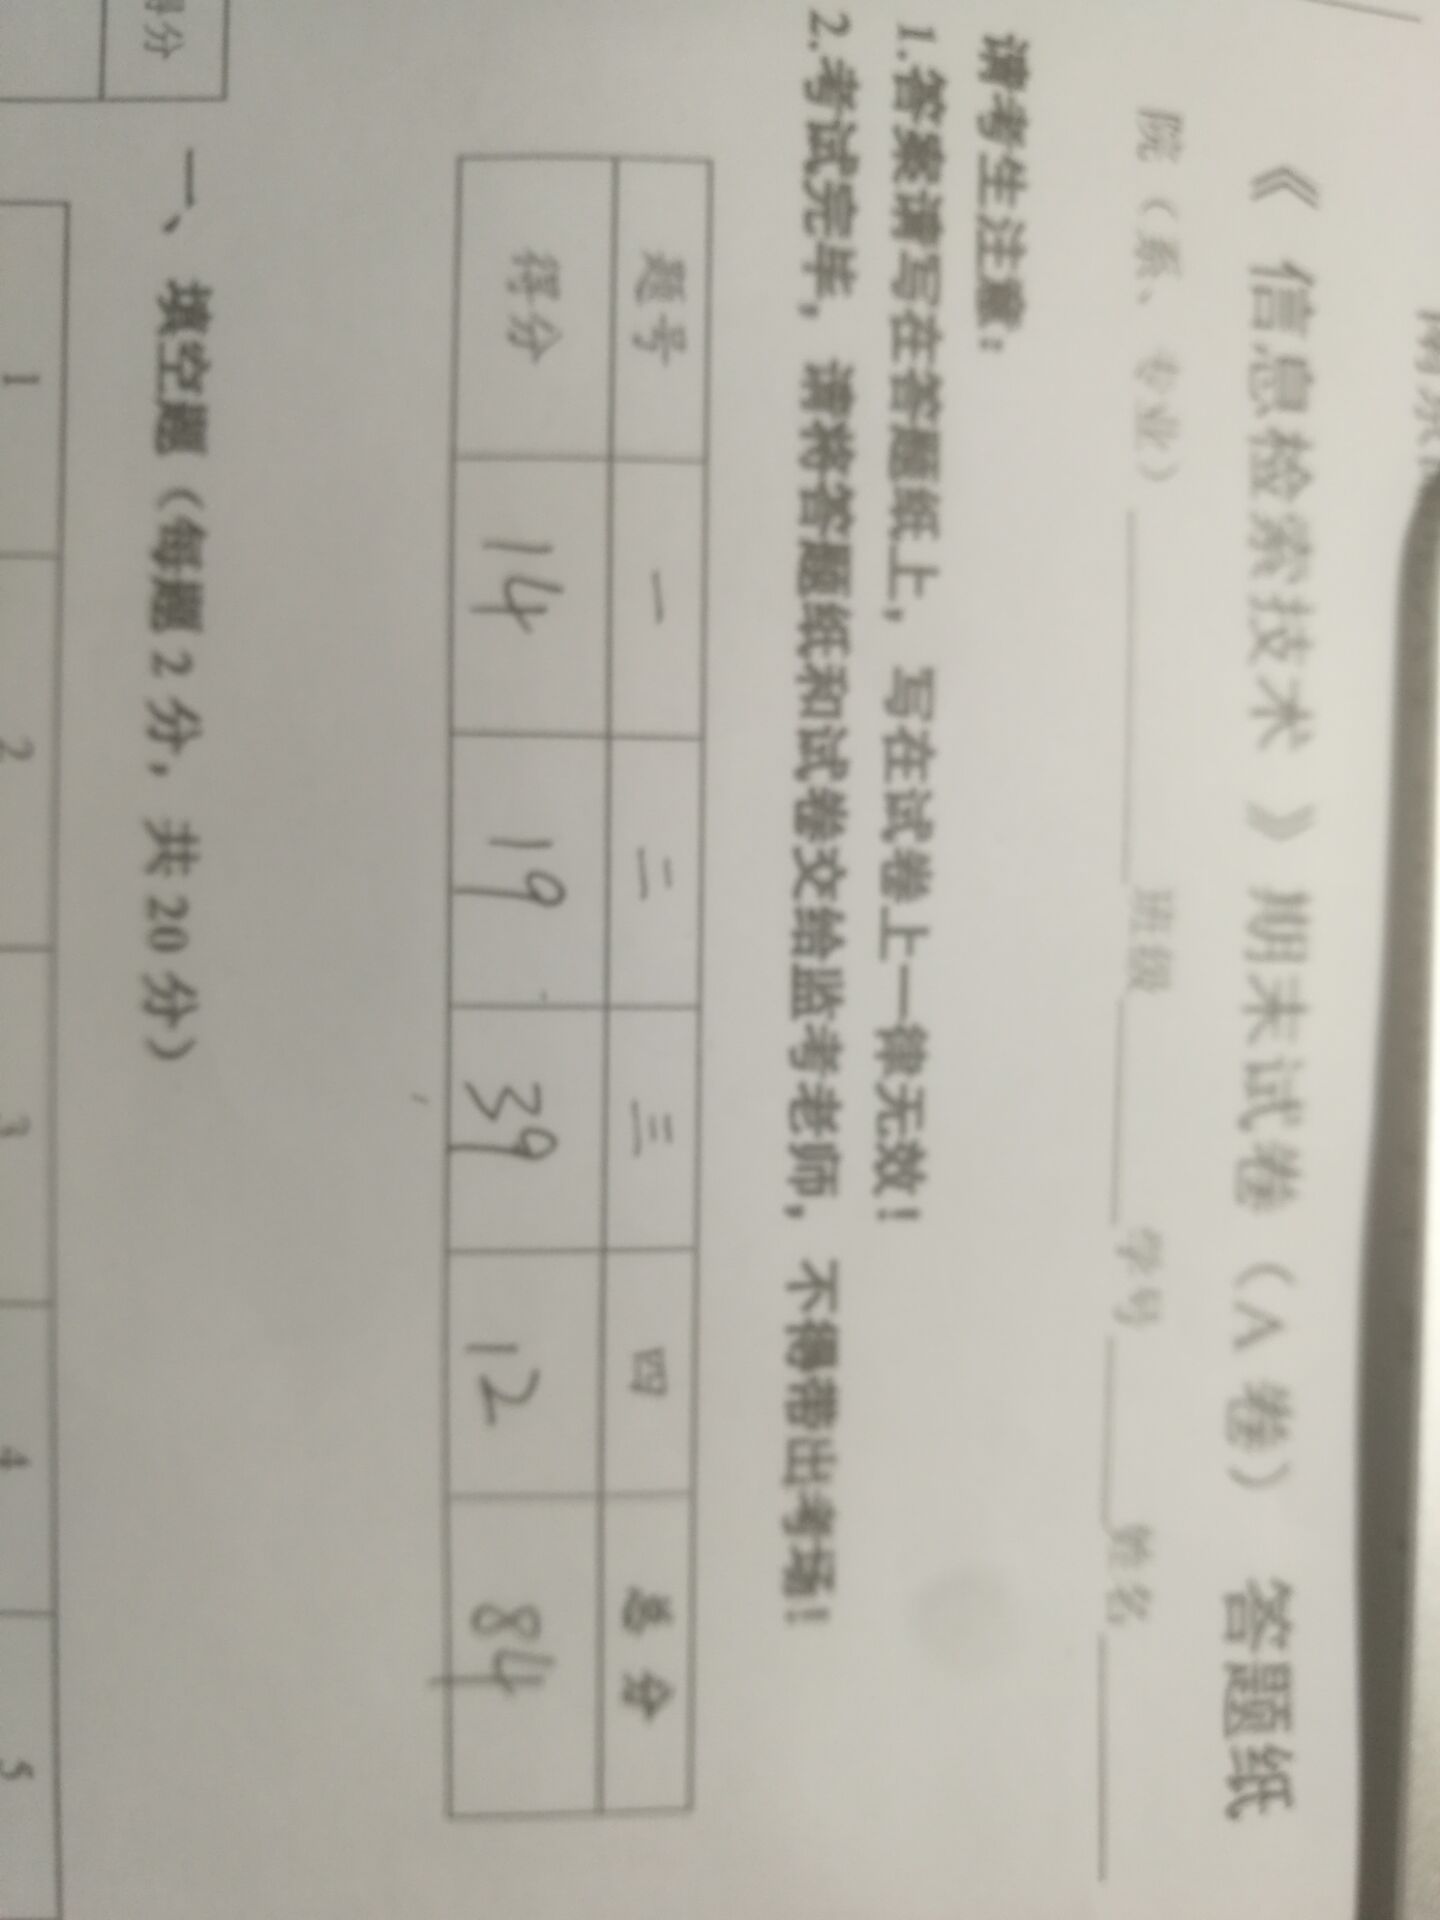 《 信息检索技术 》期末试卷（A 卷） 答题纸
院（系、专业）班级学号姓名
请考生注意：
1.答案请写在答题纸上，写在试卷上一律无效！
2.考试完毕，请将答题纸和试卷交给监考老师，不得带出考场！
题号 一 二 三 四 总分
得分 14 19 39 12 84
得分
一、填空题（每题 2 分，共 20 分）
1 2 3 4 5